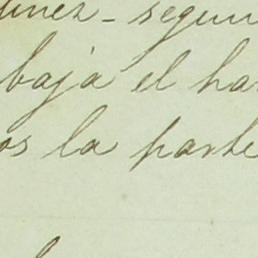 unez - segun
baja el ha
os la parte